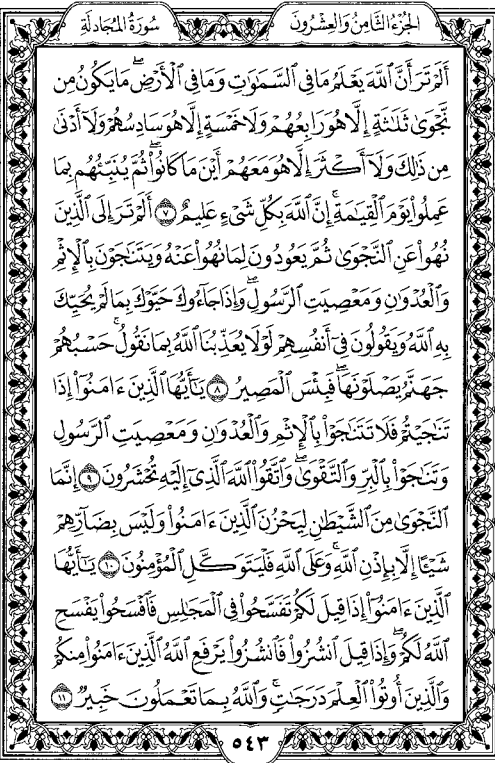 الجُزْءُ الثَّامِنُ وَالعِشْرُونَ
سُورَةُ المُجَادلَةِ
أَلَمْ تَرَ أَنَّ ٱللَّهَ يَعْلَمُ مَا فِى ٱلسَّمَٰوَٰتِ وَمَا فِى ٱلْأَرْضِ ۖ مَا يَكُونُ مِن
نَّجْوَىٰ ثَلَٰثَةٍ إِلَّا هُوَ رَابِعُهُمْ وَلَا خَمْسَةٍ إِلَّا هُوَ سَادِسُهُمْ وَلَآ أَدْنَىٰ
مِن ذَٰلِكَ وَلَآ أَكْثَرَ إِلَّا هُوَ مَعَهُمْ أَيْنَ مَا كَانُوا۟ ۖ ثُمَّ يُنَبِّئُهُم بِمَا
عَمِلُوا۟ يَوْمَ ٱلْقِيَٰمَةِ ۚ إِنَّ ٱللَّهَ بِكُلِّ شَىْءٍ عَلِيمٌ ٧ أَلَمْ تَرَ إِلَى ٱلَّذِينَ
نُهُوا۟ عَنِ ٱلنَّجْوَىٰ ثُمَّ يَعُودُونَ لِمَا نُهُوا۟ عَنْهُ وَيَتَنَٰجَوْنَ بِٱلْإِثْمِ
وَٱلْعُدْوَٰنِ وَمَعْصِيَتِ ٱلرَّسُولِ ۖ وَإِذَا جَآءُوكَ حَيَّوْكَ بِمَا لَمْ يُحَيِّكَ
بِهِ ٱللَّهُ وَيَقُولُونَ فِىٓ أَنفُسِهِمْ لَوْلَا يُعَذِّبُنَا ٱللَّهُ بِمَا نَقُولُ ۚ حَسْبُهُمْ
جَهَنَّمُ يَصْلَوْنَهَا ۖ فَبِئْسَ ٱلْمَصِيرُ ٨ يَٰٓأَيُّهَا ٱلَّذِينَ ءَامَنُوٓا۟ إِذَا
تَنَٰجَيْتُمْ فَلَا تَتَنَٰجَوْا۟ بِٱلْإِثْمِ وَٱلْعُدْوَٰنِ وَمَعْصِيَتِ ٱلرَّسُولِ
وَتَنَٰجَوْا۟ بِٱلْبِرِّ وَٱلتَّقْوَىٰ ۖ وَٱتَّقُوا۟ ٱللَّهَ ٱلَّذِىٓ إِلَيْهِ تُحْشَرُونَ ٩ إِنَّمَا
ٱلنَّجْوَىٰ مِنَ ٱلشَّيْطَٰنِ لِيَحْزُنَ ٱلَّذِينَ ءَامَنُوا۟ وَلَيْسَ بِضَآرِّهِمْ
شَيْـًٔا إِلَّا بِإِذْنِ ٱللَّهِ ۚ وَعَلَى ٱللَّهِ فَلْيَتَوَكَّلِ ٱلْمُؤْمِنُونَ ١٠ يَٰٓأَيُّهَا
ٱلَّذِينَ ءَامَنُوٓا۟ إِذَا قِيلَ لَكُمْ تَفَسَّحُوا۟ فِى ٱلْمَجَٰلِسِ فَٱفْسَحُوا۟ يَفْسَحِ
ٱللَّهُ لَكُمْ ۖ وَإِذَا قِيلَ ٱنشُزُوا۟ فَٱنشُزُوا۟ يَرْفَعِ ٱللَّهُ ٱلَّذِينَ ءَامَنُوا۟ مِنكُمْ
وَٱلَّذِينَ أُوتُوا۟ ٱلْعِلْمَ دَرَجَٰتٍ ۚ وَٱللَّهُ بِمَا تَعْمَلُونَ خَبِيرٌ ١١
٥٤٣